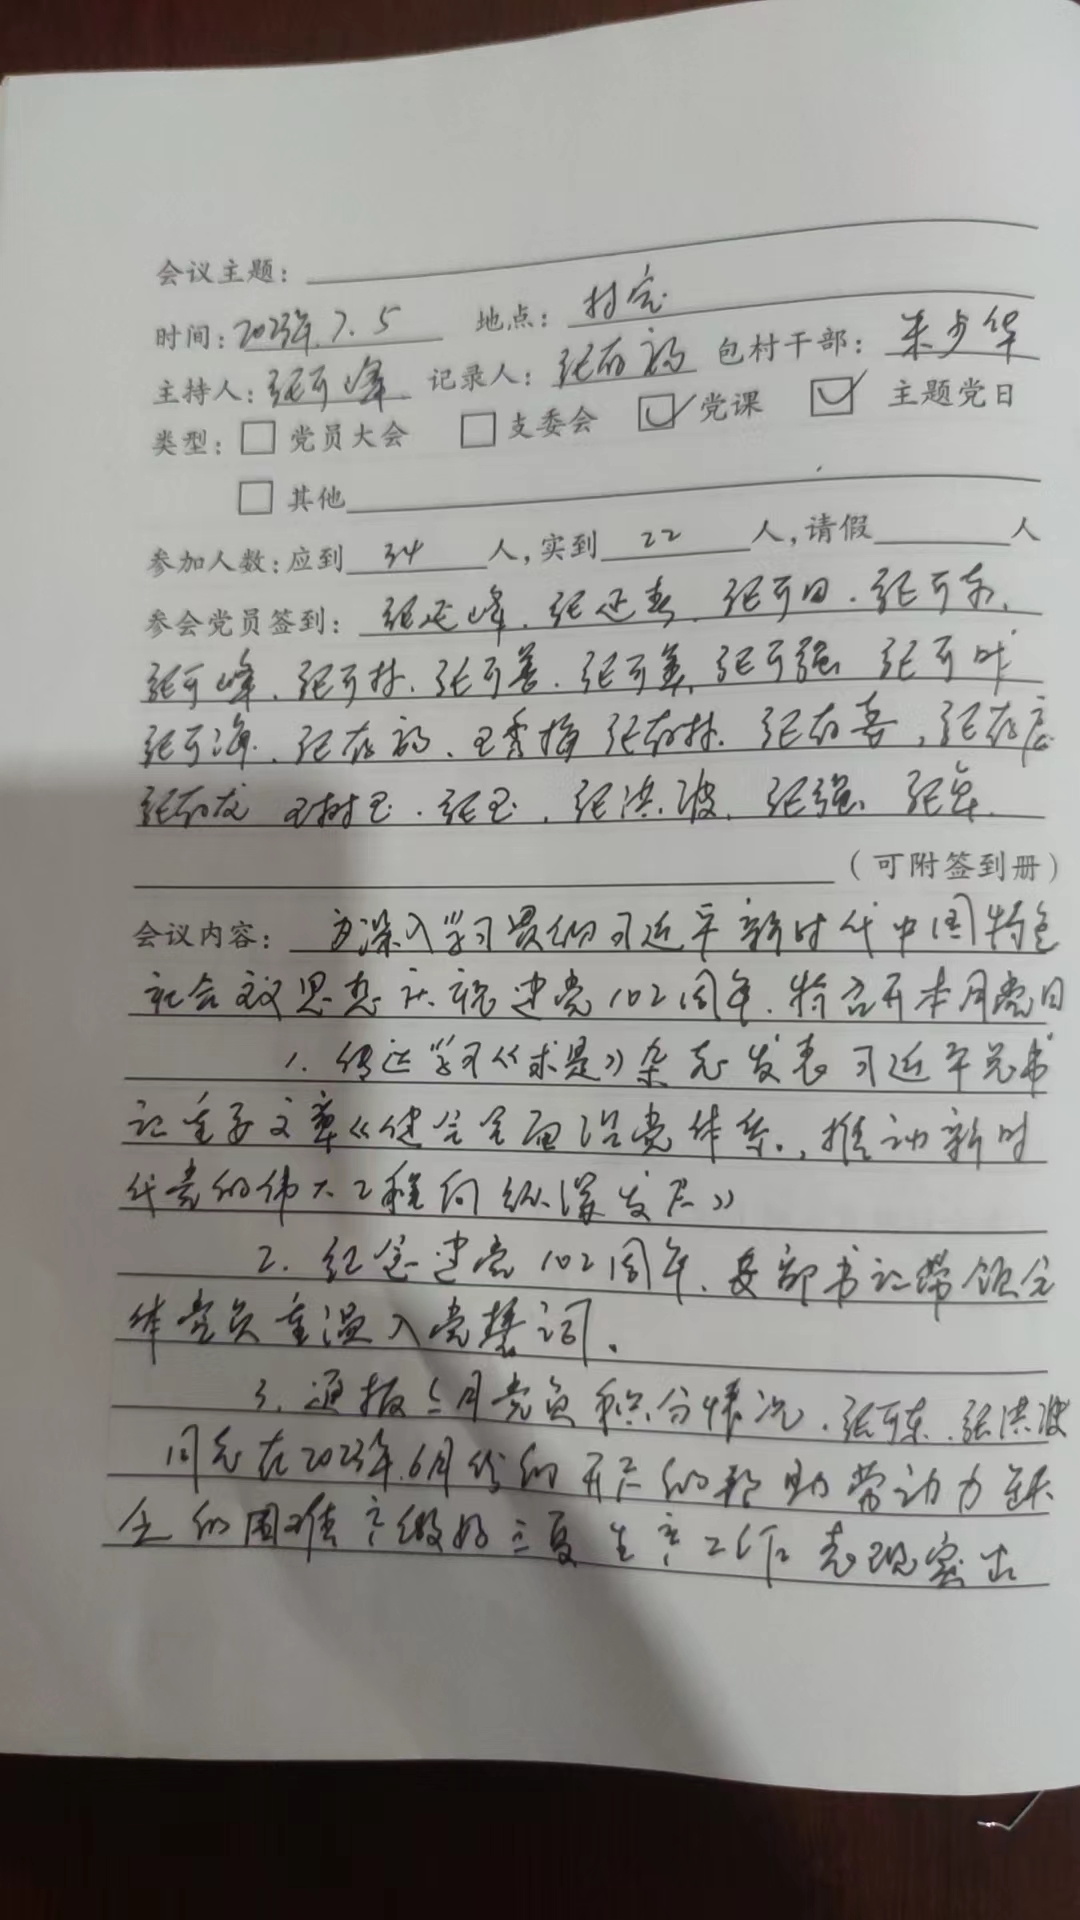 会议主题：
时间：2023年.7.5 地点：村室
主持人：张可峰 记录人：张存福 包村干部：朱少华
类型：□党员大会 □支委会 ☑党课 ☑主题党日
□其他
参加人数：应到 34 人，实到 22 人，请假 人
参会党员签到：张延峰、张延春、张可田、张可东、
张可峰、张可林、张可善、张可美、张可强 张可
张可海、张存福、王秀梅 张存林、张存喜，张存
张存友 王树玉．张玉，张洪波、张强、张
（可附签到册）
会议内容：为深入学习贯彻习近平新时代中国特色
社会主义思想 庆祝建党102周年．特召开本月党日
1．传达学习《求是》杂志发表习近平总书
记重要文章《健全全面从严治党体系．推动新时
代党的伟大工程向纵深发展》
2．纪念建党102周年．支部书记带领全
体党员重温入党誓词．
3．通报6月党员积分情况．张可东．张洪波
同志在2023年.6月份的开展的帮助劳动力缺
乏的困难户做好三夏生产工作 表现突出